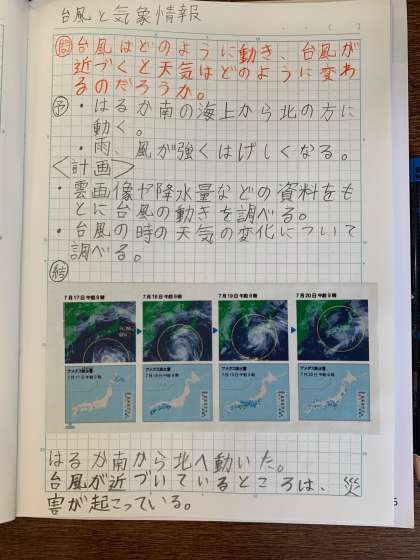 台風と気象情報
問 台風はどのように動き、台風が
近づくと天気はどのように変わ
るのだろうか。
予 ・はるか南の海上から北の方に
動く。
・雨、風が強くはげしくなる。
<計画>
・雲画像や降水量などの資料をも
とに台風の動きを調べる。
・台風の時の天気の変化について
調べる。
結
7月17日午前9時 7月18日午前9時 7月19日午前9時 7月20日午前9時
アメダス降水量 アメダス降水量 アメダス降水量 アメダス降水量
7月17日午前9時 7月18日午前9時 7月19日午前9時 7月20日午前9時
はるか南から北へ動いた。
台風が近づいているところは、災
害が起こっている。